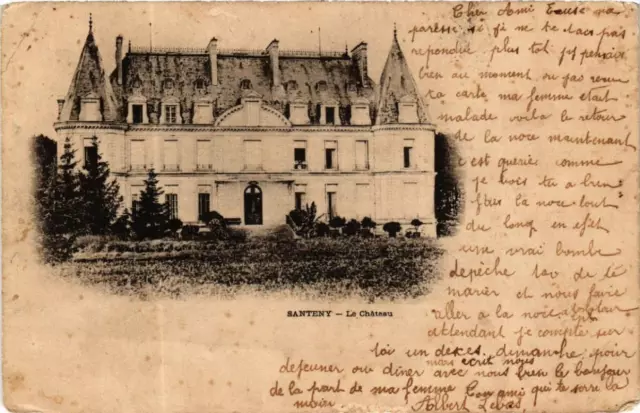 SANTENY – Le Château
Cher Ami Excuse ma
paresse si je ne t'ais pas
repondue plus tot jy pensais
bien au moment ou jas recus
ta carte ma femme etait
malade voila le retour
de la noce maintenant
c'est guerie comme
je vois tu a bien
fais la noce tout
du long en efet
une vrai bombe
depèche toi de te
marier et nous faire
aller a la noce
attendant je compte sur
toi un de ces dimanche pour
mais ecrit nous
dejeuner ou diner avec nous bien le bonjour
de la part de ma femme Ton ami qui te serre la
main Albert